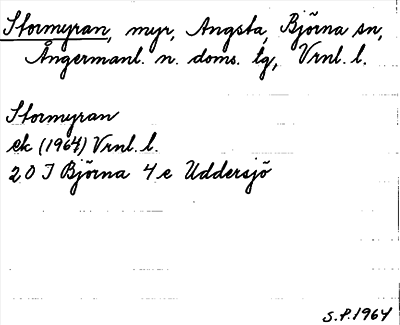 Stormyran, myr, Angsta, Björna sn,
Ångermanl. n. doms. tg, Vrnl. l.
Stormyran
ek (1964) Vrnl. l.
20 I Björna 4 e Uddersjö
S.P. 1964